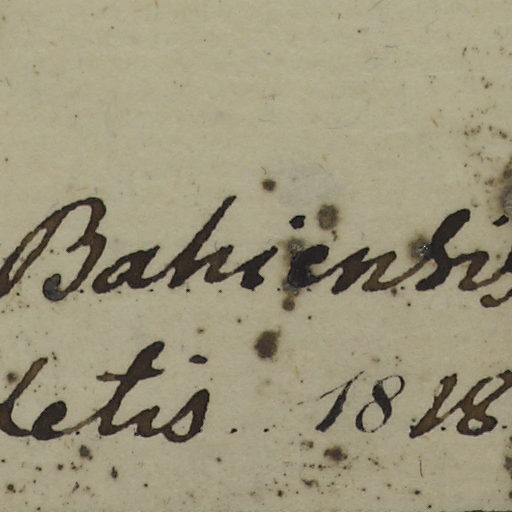 Bahiensis
letis. 1818